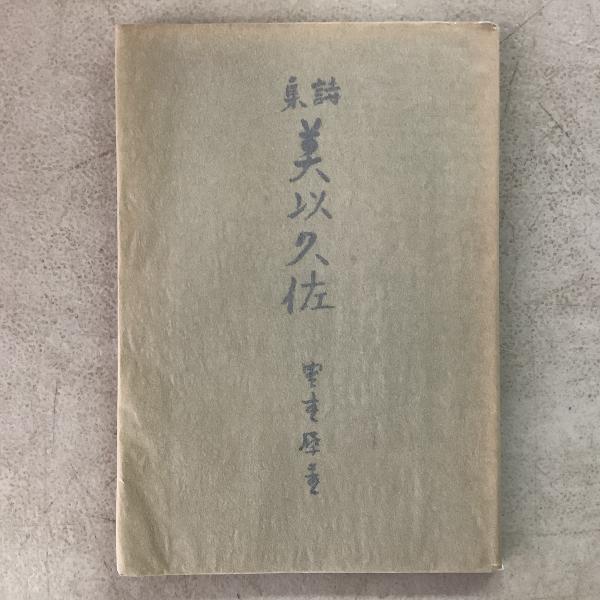 詩集
美以久佐
室生犀星